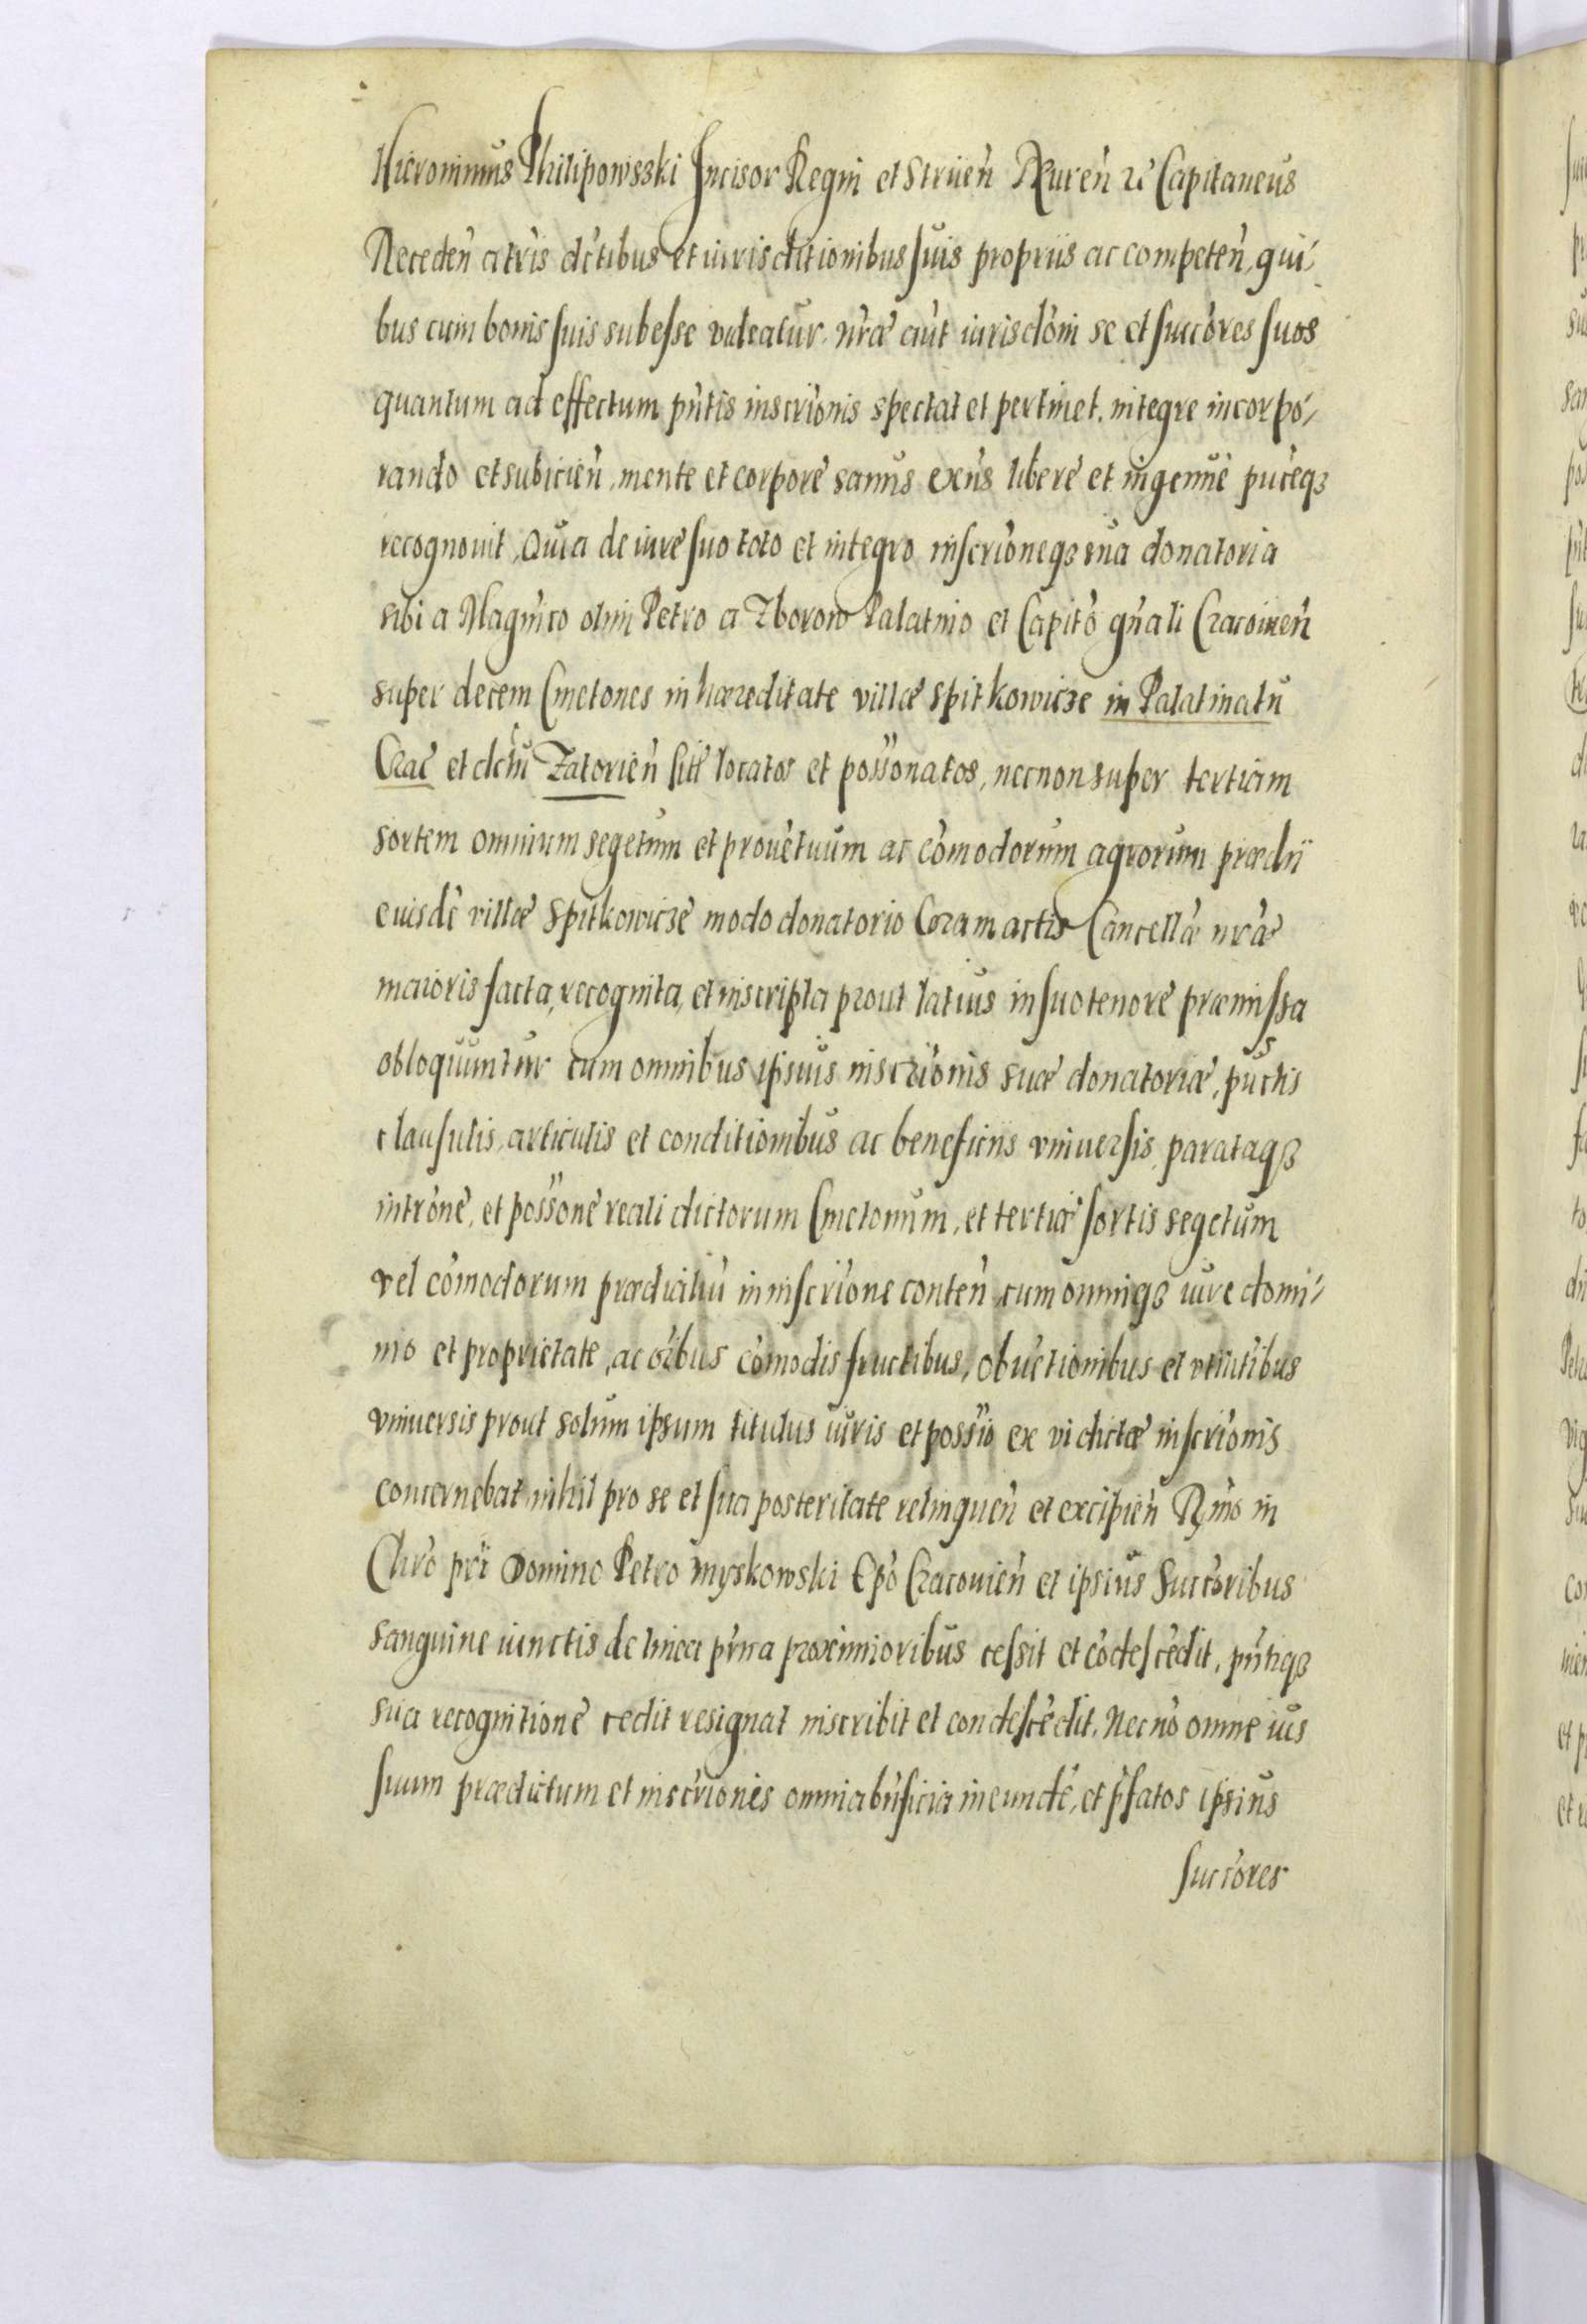 Hieronimus Philipowsski Incisor Regni et Striień Æureń rc̃ Capitaneus
Recedeń a tr̃is dc̃tibus et iurisditionibus suis propriis ac competeń, qui/
bus cum bonis suis subesse videatur. nr̃æ aũt iurisdõni se et succ̃ores suos
quantum ad effectum pñtis inscriõnis spectat et pertinet. integre incorpo/
rando et subicień, mente et corpore sanus exñs libere et ingenue pu͂ceqȝ
recognouit, Quia de iure suo toto et integro inscriõneqȝ sua donatoria
sibi a Magñico olim Petro a Zborow Palatino et Capit̃o gñali Cracouień
super decem Cmetones in hæreditate villæ Spitkowicze in Palatinatu
Craẽ et dc̃tu Zatorień sitẽ locatos et poss̃onatos, necnon super tertiam
sortem omnium segetum et prouẽtuum ac cõmodorum agrorum prædii
eiusdẽ villæ Spitkowicze modo donatorio Coram actis Cancellæ nr̃æ
maioris facta, recognita, et inscripta prout latius in suo tenore præmissa
obloquuntur cum omnibus ipsius inscriõnis suæ donatoriæ, pũctis
clausulis, articulis et conditionibus ac beneficiis vniuersis, parataqȝ
intrõne, et poss̃one reali dictorum Cmetonum, et tertiæ sortis segetum
vel cõmodorum prædialiũ in inscriõne conteń, cum omniqȝ iure domi/
nio et proprietate, ac oĩbus cõmodis fructibus, obuetionibus et vtilit̃ibus
vniuersis prout solum ipsum titulus iuris et poss̃io ex vi dictæ inscriõnis
concernebat, nihil pro se et sua posteritate relinqueń et excipień Rm̃o in
Chr̃o pr̃i Domino Petro Myskowski Ep̃o Cracouień et ipsius Succ̃oribus
sanguine iunctis de linea pr̃na proximioribus cessit et cõdescẽdit, pñtiqȝ
sua recognitione cedit resignat inscribit et condescẽdit. Necnõ omne ius
suum prædictum et inscriõnis omnia bñficia in eundẽ, et p̃fatos ipsius
succ̃ores